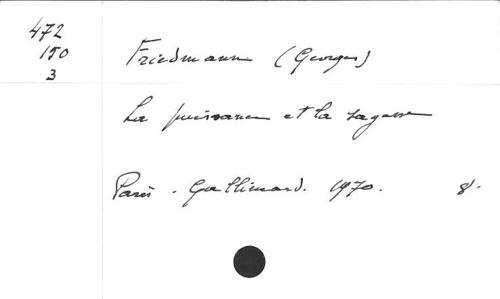 472
150
3
Friedmann (Georges)
La puissance et la sagesse
Paris. Gallimard. 1970. 8.